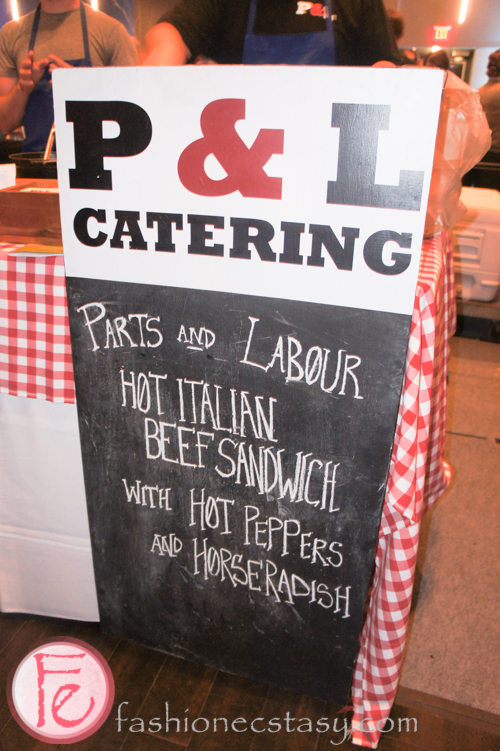 P&L
EXIT
P & L
CATERING
PARTS AND LABOUR
HOT ITALIAN
BEEF SANDWICH
WITH HOT PEPPERS
AND HORSERADISH
Fe
fashionecstasy.com